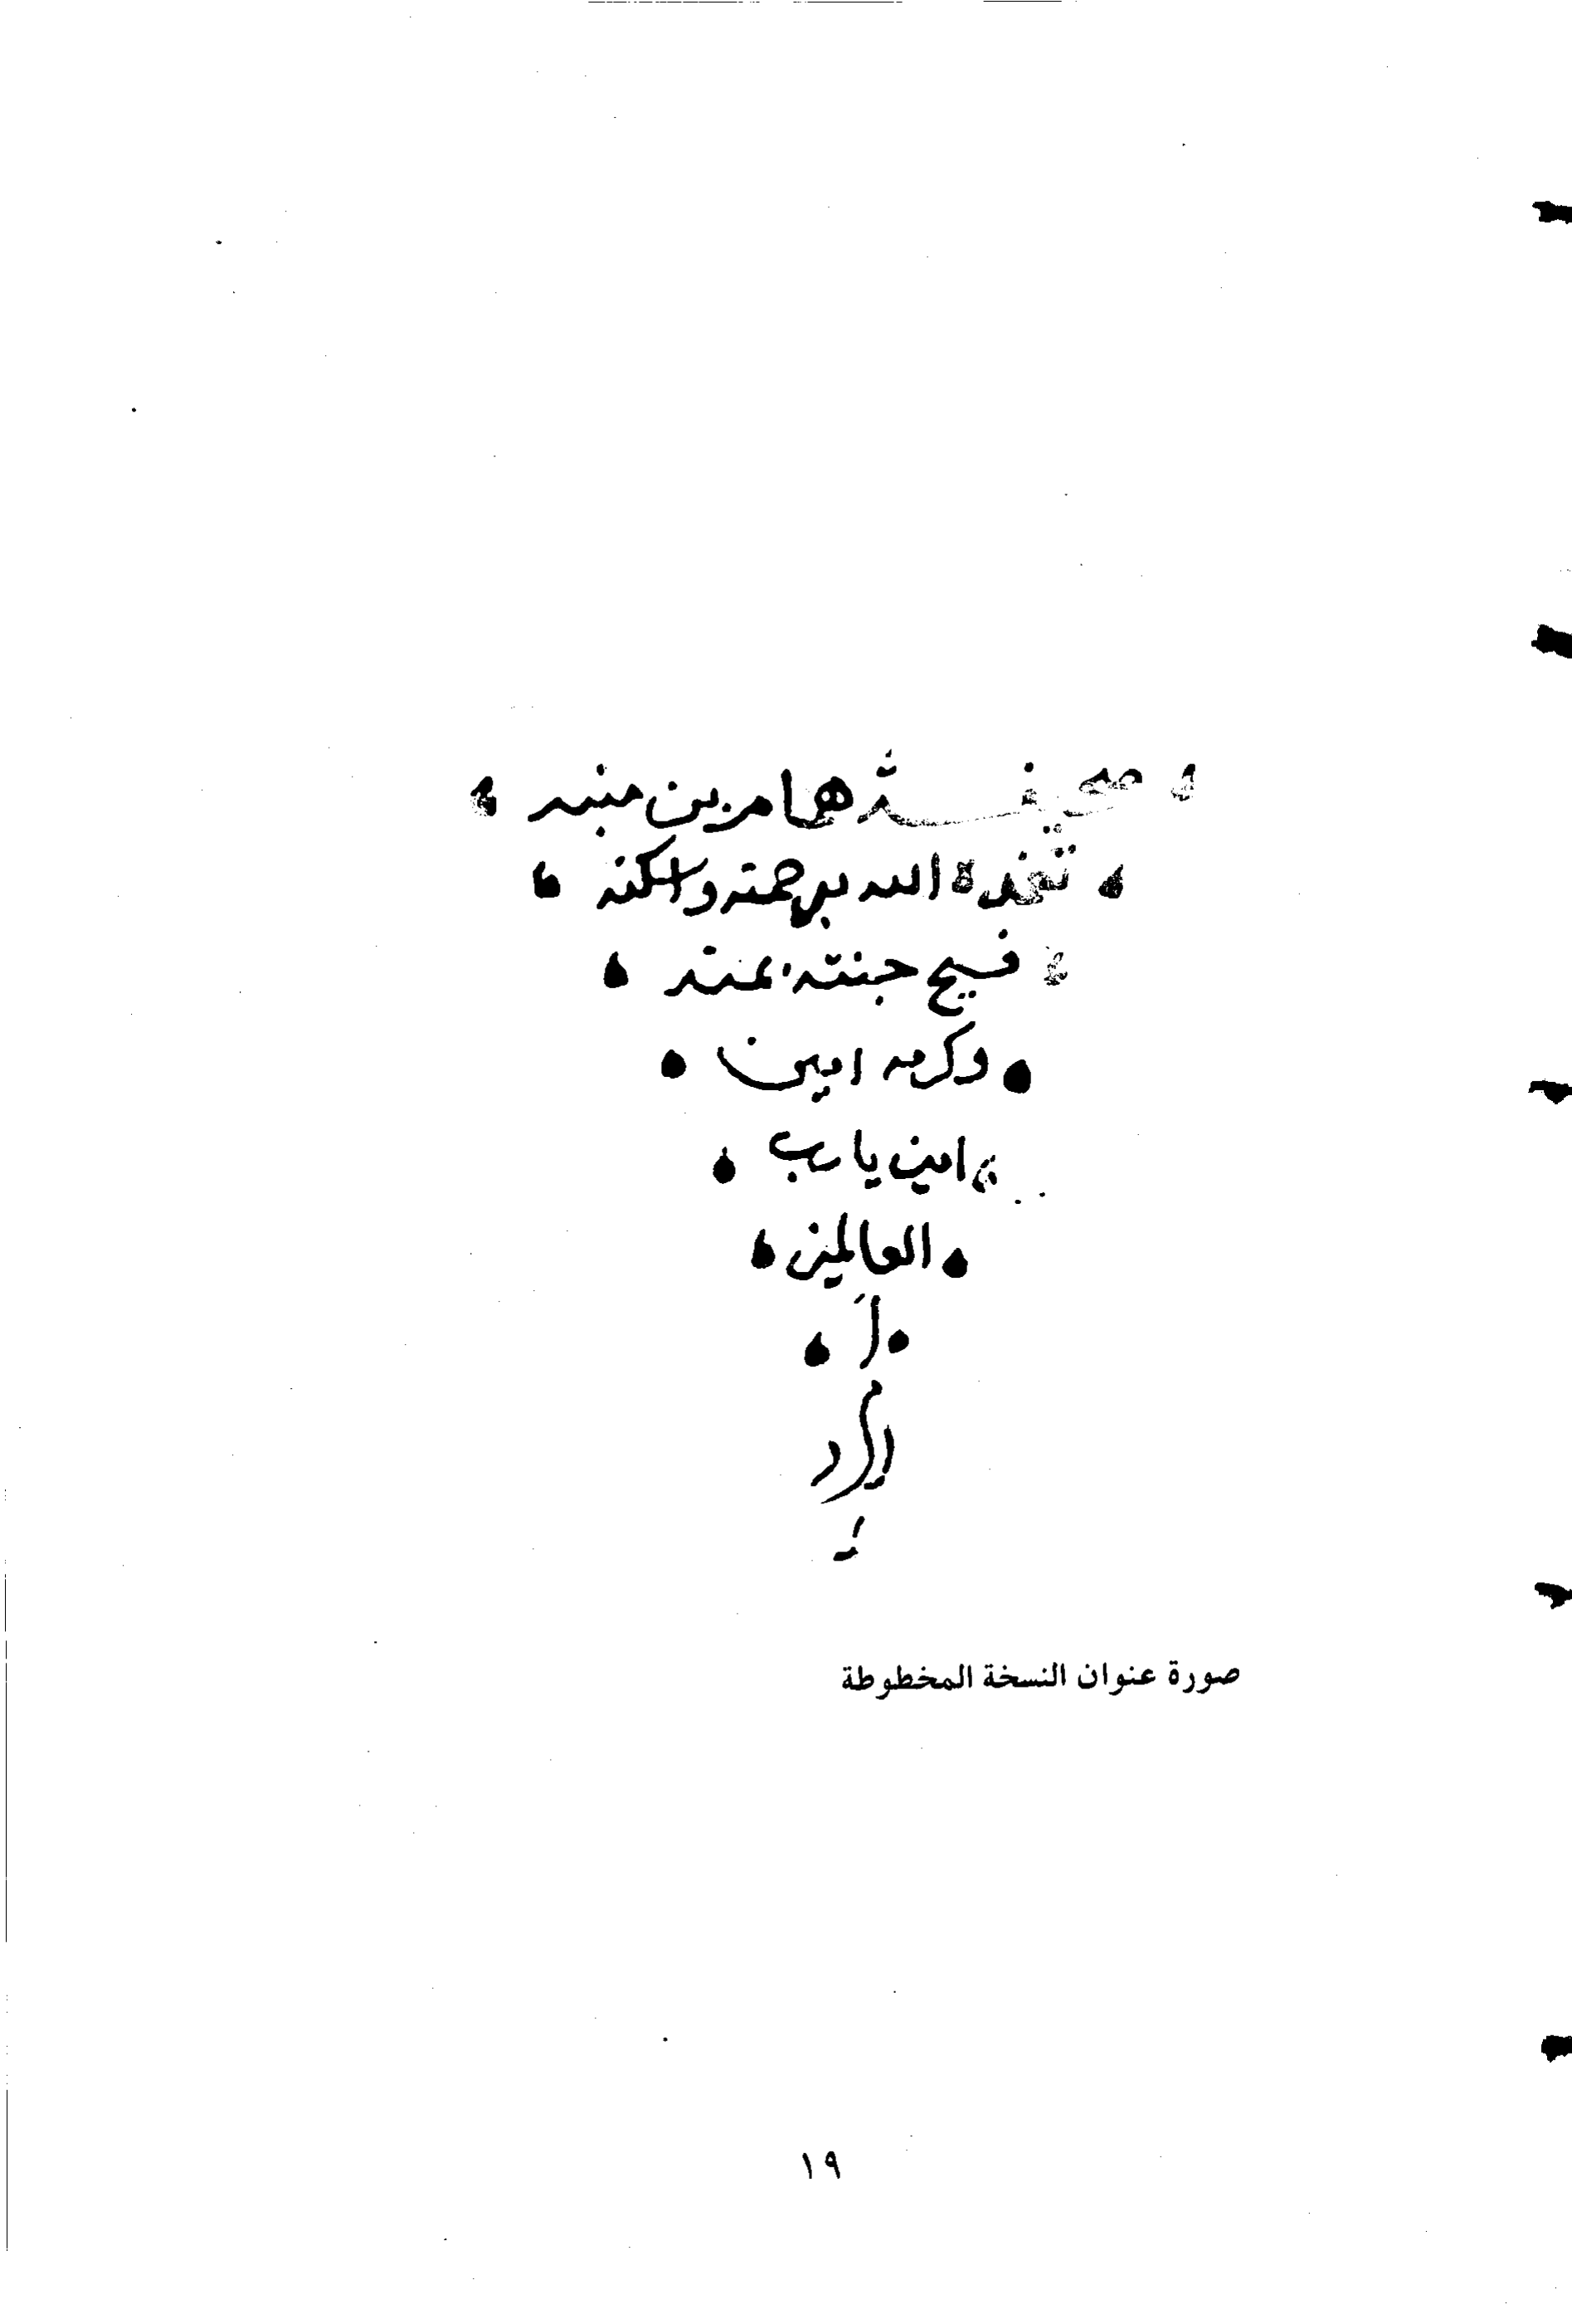 صحيفة همام بن منبه
تغمده الله برحمته واسكنه
فسيح جنته بمنه
وكرمه امين
امين يا رب
العالمين
صورة عنوان النسخة المخطوطة
١٩